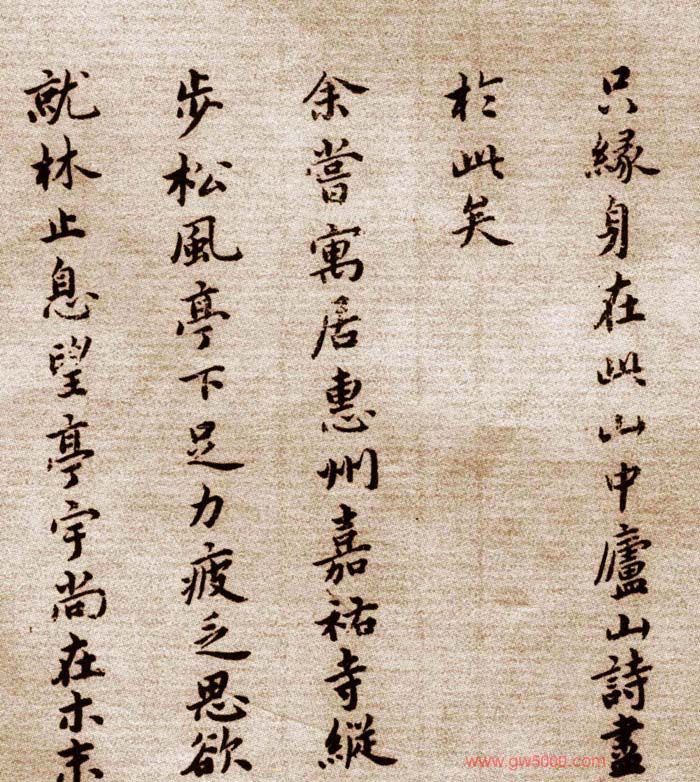 只緣身在此山中廬山詩盡
於此矣
余嘗寓居惠州嘉祐寺縱
步松風亭下足力疲乏思欲
就林止息望亭宇尚在木末
www.gw5000.com